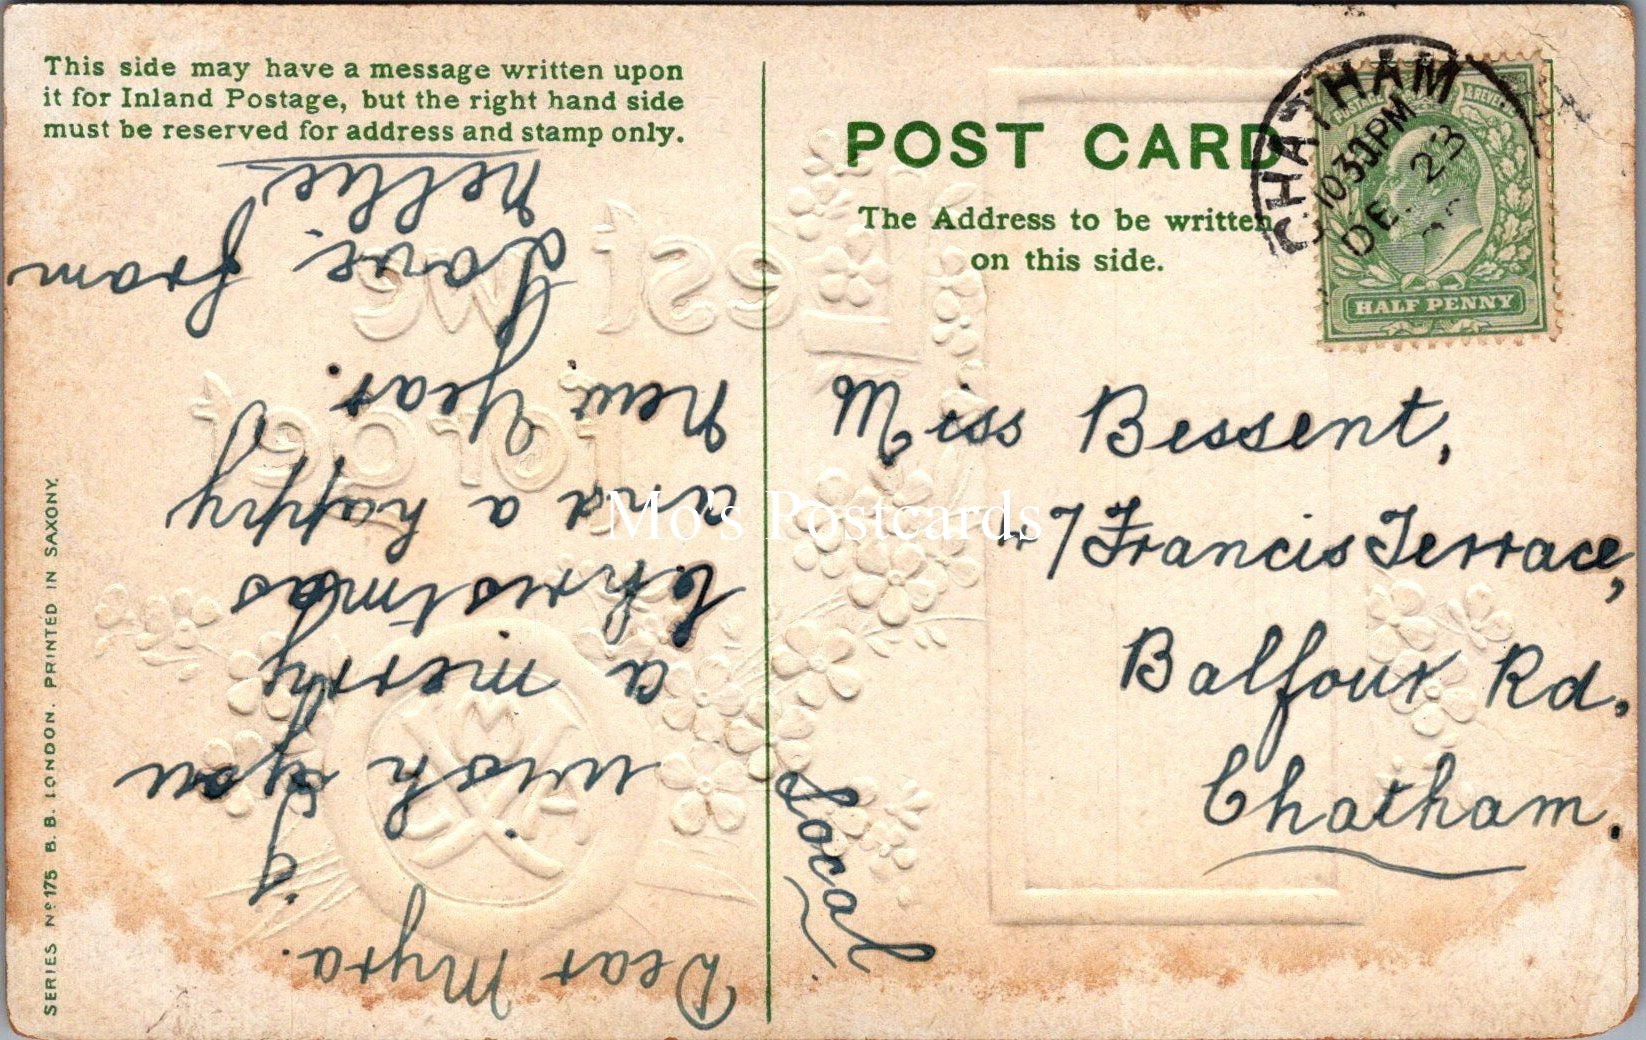 This side may have a message written upon
it for Inland Postage, but the right hand side
must be reserved for address and stamp only.
POST CARD
The Address to be written
on this side.
CHATHAM
10 30 PM
DE 23
POSTAGE & REVENUE
HALF PENNY
Miss Bessent,
47 Francis Terrace,
Balfour Rd,
Chatham.
Local
Dear Myra.
I
wish you
a merry
Christmas
and a happy
New Year.
from
Love
Nellie
forget
SERIES Nº 175 B. B. LONDON. PRINTED IN SAXONY.
Mo's Postcards